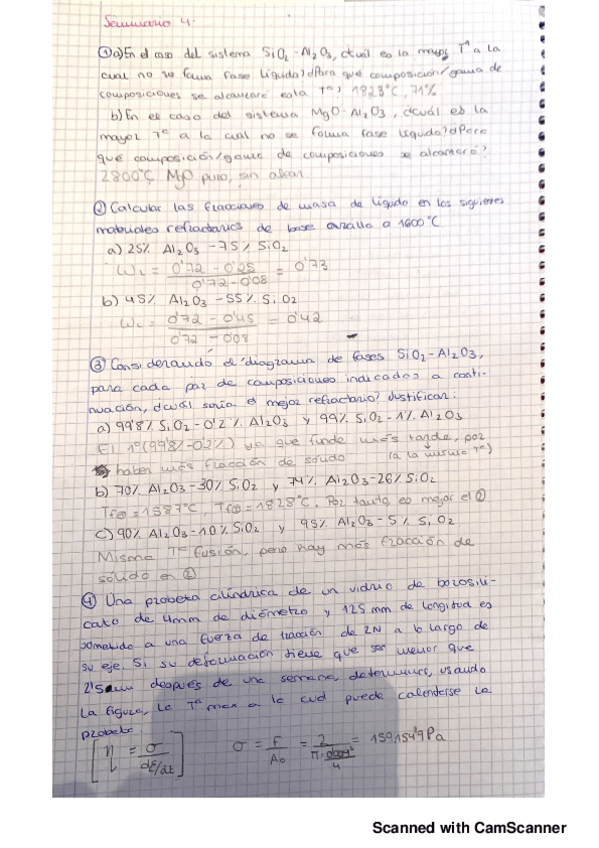 Seminario 4.
① a) En el caso del sistema SiO2 - Al2O3, ¿cuál es la mayor Tª a la
cual no se forma fase líquida? ¿Para qué composición/gama de
composiciones se alcanzará esta Tª? 1828ºC, 71%
b) En el caso del sistema MgO-Al2O3, ¿cuál es la
mayor Tª a la cual no se forma fase líquida? ¿Para
qué composición/gama de composiciones se alcanzará?
2800ºC, MgO puro, sin
② Calcular las fracciones de masa de líquido en los siguientes
materiales refractarios de base arcilla a 1600ºC
a) 25% Al2O3 - 75% SiO2
WL = 0'72 - 0'25 / 0'72 - 0'08 = 0'73
b) 45% Al2O3 - 55% SiO2
WL = 0'72 - 0'45 / 0'72 - 0'08 = 0'42
③ Considerando el diagrama de fases SiO2 - Al2O3,
para cada par de composiciones indicadas a conti-
nuación, ¿cuál sería el mejor refractario? Justificar:
a) 99'8% SiO2 - 0'2% Al2O3 y 99% SiO2 - 1% Al2O3
El 1º (99'8% - 0'2%) ya que funde más tarde, por
haber más fracción de sólido (a la misma Tª)
b) 70% Al2O3 - 30% SiO2 y 74% Al2O3 - 26% SiO2
Tf① = 1587ºC, Tf② = 1828ºC. Por tanto, es mejor el ②
c) 90% Al2O3 - 10% SiO2 y 95% Al2O3 - 5% SiO2
Misma Tª fusión, pero hay más fracción de
sólido en ②
④ Una probeta cilíndrica de un vidrio de borosili-
cato de 4mm de diámetro y 125 mm de longitud es
sometido a una fuerza de tracción de 2N a lo largo de
su eje. Si su deformación tiene que ser menor que
2'5mm después de una semana, determinar, usando
la figura, la Tª max a la cual puede calentarse la
probeta.
[η = σ / dε/dt] σ = F / A0 = 2 / π·0'004² / 4 = 159.154'9 Pa
Scanned with CamScanner